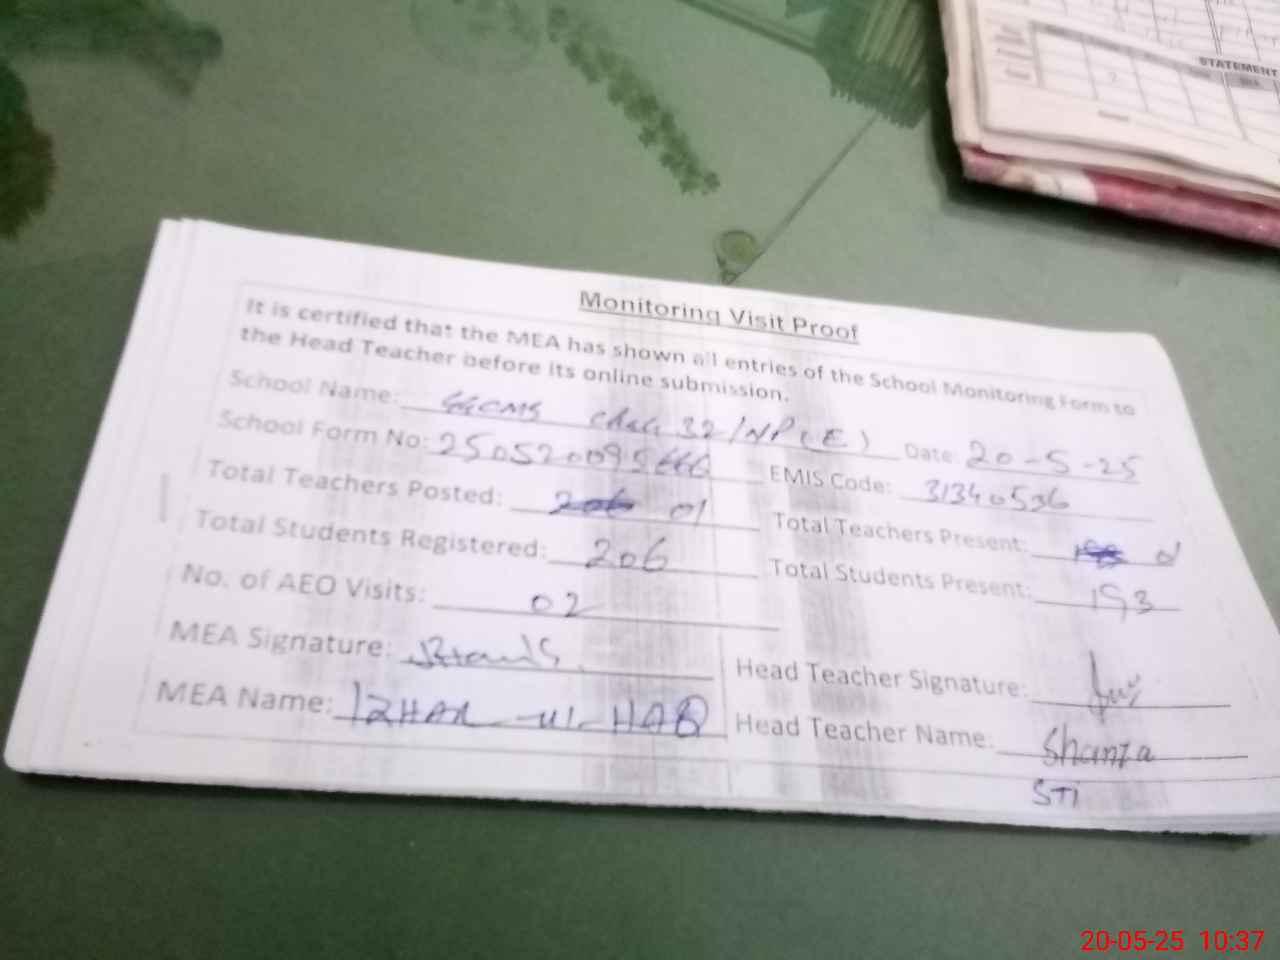 STATEMENT
Monitoring Visit Proof
It is certified that the MEA has shown all entries of the School Monitoring Form to
the Head Teacher before its online submission.
School Name: GGCMS Chak 32/NP (E) Date: 20-5-25
School Form No: EMIS Code: 31340536
Total Teachers Posted: 01 Total Teachers Present:
Total Students Registered: 206 Total Students Present: 193
No. of AEO Visits: 02
MEA Signature: Head Teacher Signature:
MEA Name: IZHAR-UL-HAQ Head Teacher Name: Shanza
STI
20-05-25 10:37